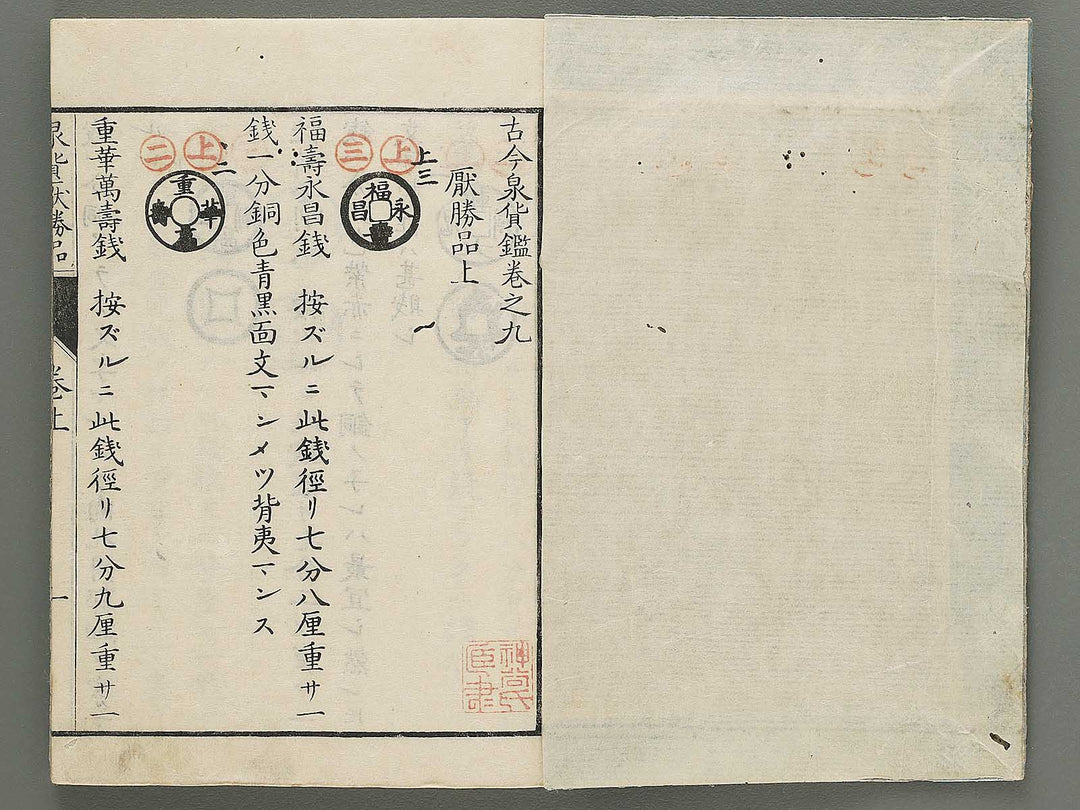 古今泉貨鑑巻之九
厭勝品上
上三
上
三
福
永
壽
昌
福壽永昌銭 按ズルニ此銭徑リ七分八厘重サ一
銭一分銅色青黒面文マンメツ背夷マンス
上
二
重
華
萬
壽
重華萬壽銭 按ズルニ此銭徑リ七分九厘重サ一
泉貨厭勝品
巻上
一